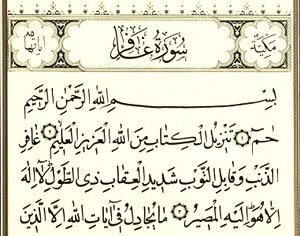 مكية سُورَة غَافِر آياتها ٨٥
بِسْمِ اللهِ الرَّحْمٰنِ الرَّحِيمِ
حٰمٓ ۝١ تَنْزِيلُ الْكِتَابِ مِنَ اللهِ الْعَزِيزِ الْعَلِيمِ ۝٢ غَافِرِ
الذَّنْبِ وَقَابِلِ التَّوْبِ شَدِيدِ الْعِقَابِ ذِي الطَّوْلِ لَا إِلٰهَ
إِلَّا هُوَ إِلَيْهِ الْمَصِيرُ ۝٣ مَا يُجَادِلُ فِي آيَاتِ اللهِ إِلَّا الَّذِينَ